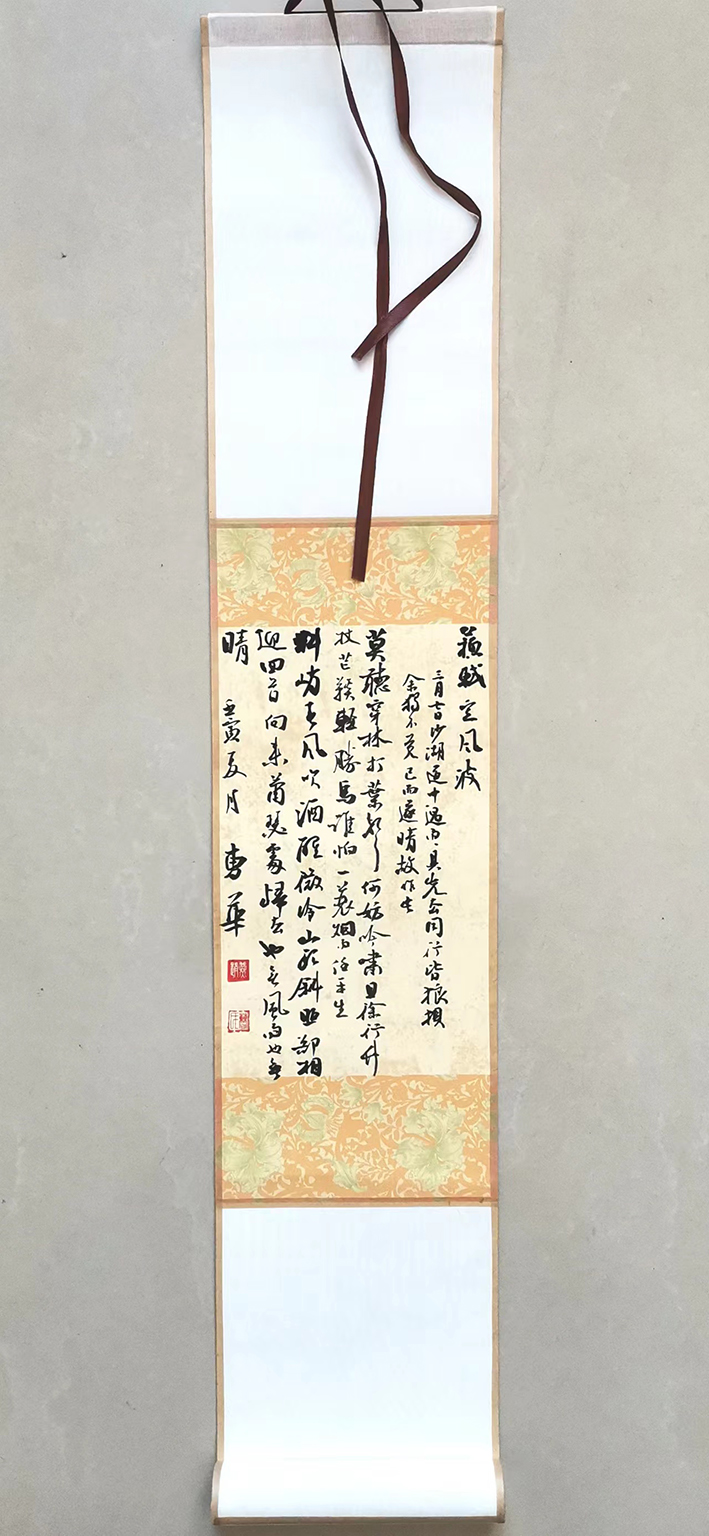 蘇軾定风波
三月七日沙湖道中遇雨雨具先去同行皆狼狽
余獨不覺已而遂晴故作此
莫聽穿林打葉聲何妨吟嘯且徐行竹
杖芒鞵輕勝馬誰怕一蓑烟雨任平生
料峭春风吹酒醒微冷山头斜照却相
迎回首向来蕭瑟處歸去也無風雨也無
晴 壬寅夏月 華